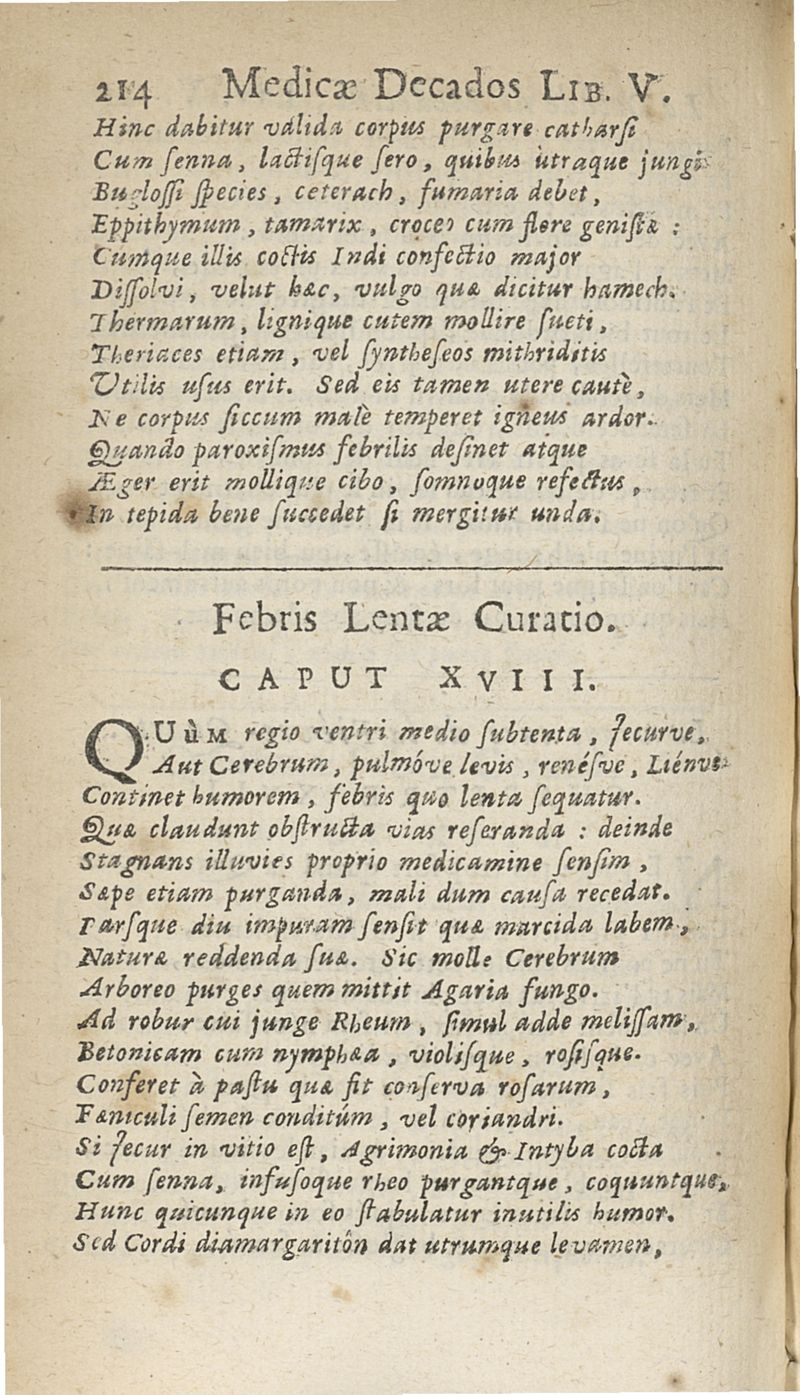 214 Medicæ Decados LIB. V.
Hinc dabitur válida corpus purgare catharſi
Cum ſenna, lactiſque ſero, quibus ùtraque jungi
Bugloſſi ſpecies, ceterach, fumaria debet,
Eppithymum, tamarix, croceo cum flore geniſtæ :
Cumque illis coctis Indi confectio major
Diſſolvi, velut hæc, vulgo quæ dicitur hamech.
Thermarum, lignique cutem mollire ſueti,
Theriaces etiam, vel ſyntheſeos mithriditis
Utilis uſus erit. Sed eis tamen utere cautè,
Ne corpus ſiccum malè temperet igneus ardor.
Quando paroxiſmus febrilis deſinet atque
Æger erit mollique cibo, ſomnoque refectus,
In tepida bene ſuccedet ſi mergitur unda.
Febris Lentæ Curatio.
CAPUT XVIII.
QUùM regio ventri medio ſubtenta, Jecurve,
Aut Cerebrum, pulmóve levis, renéſve, Liénve
Continet humorem, febris quo lenta ſequatur.
Quæ claudunt obſtructa vias reſeranda : deinde
Stagnans illuvies proprio medicamine ſenſim,
Sæpe etiam purganda, mali dum cauſa recedat.
Parſque diu impuram ſenſit quæ marcida labem,
Naturæ reddenda ſuæ. Sic molle Cerebrum
Arboreo purges quem mittit Agaria fungo.
Ad robur cui junge Rheum, ſimul adde meliſſam,
Betonicam cum nymphæa, violiſque, roſiſque.
Conferet à paſtu quæ fit conſerva roſarum,
Fæniculi ſemen conditúm, vel coriandri.
Si Jecur in vitio eſt, Agrimonia & Intyba cocta
Cum ſenna, infuſoque rheo purgantque, coquuntque,
Hunc quicunque in eo ſtabulatur inutilis humor.
Sed Cordi diamargaritôn dat utrumque levamen,